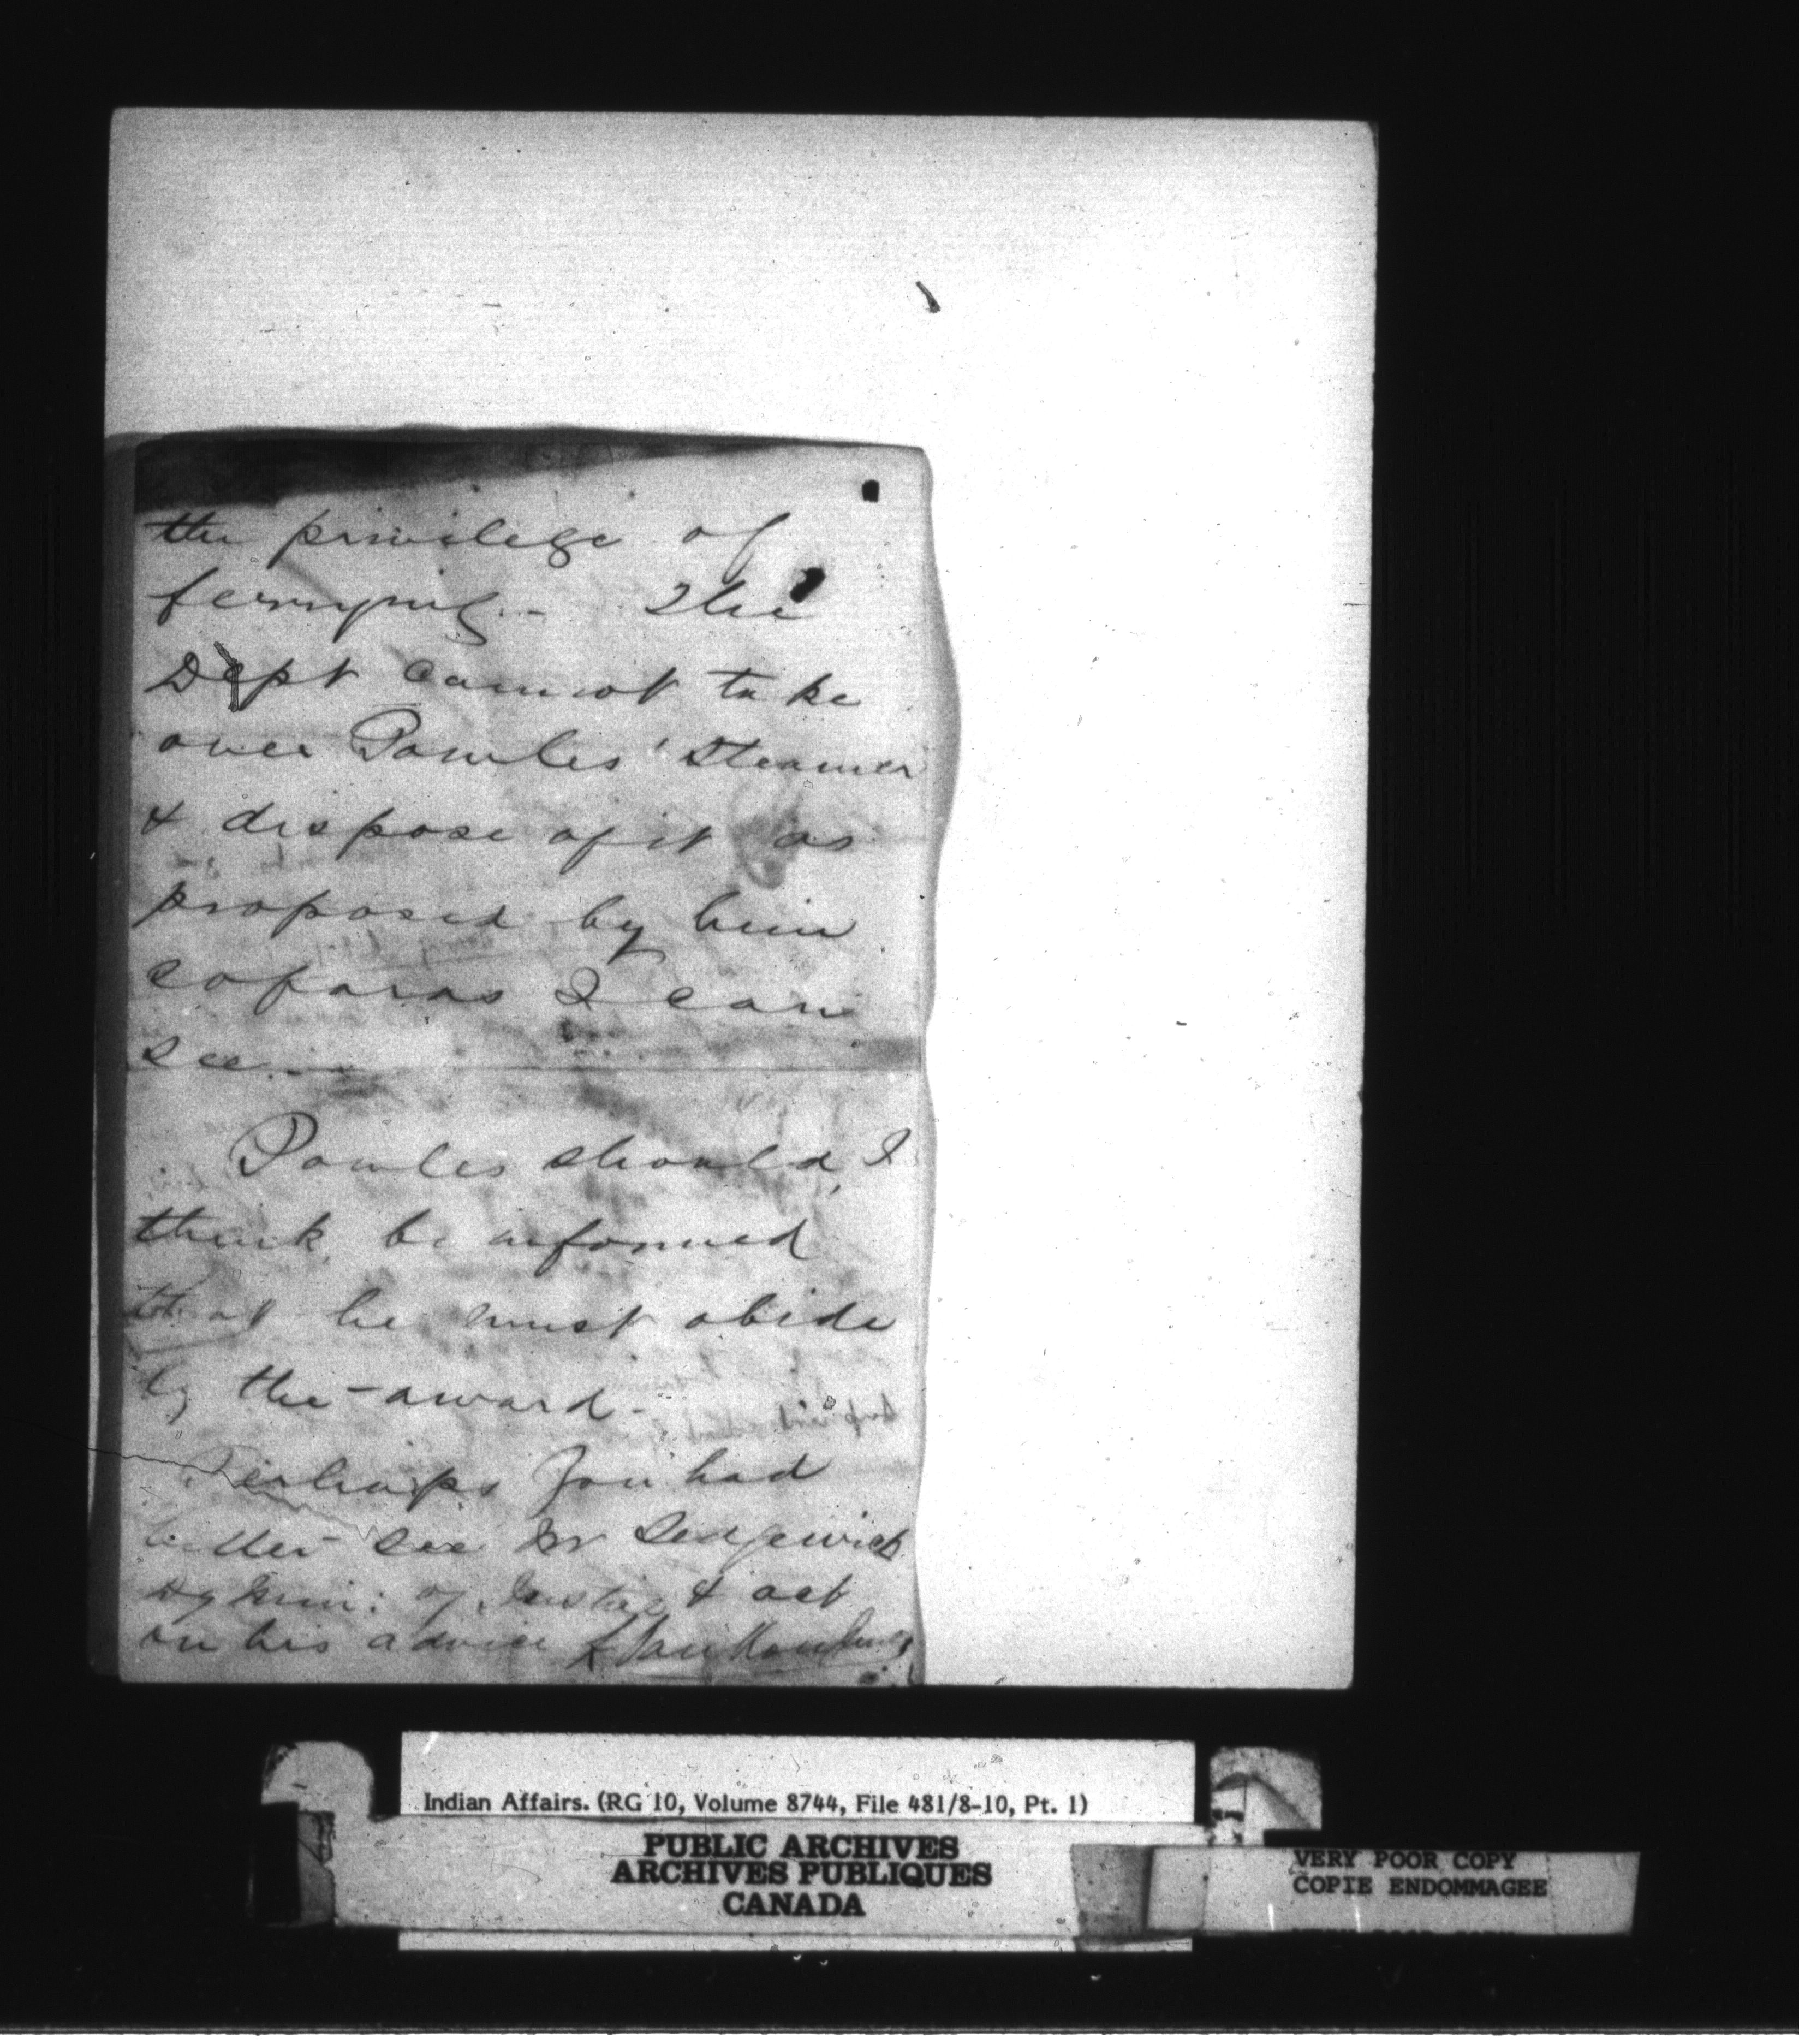 the privilege of
ferrying. - The
Dept cannot take
over Powles' steamer
& dispose of it as
proposed by him
sofaras I can
see.
Powles should, I
think, be informed
that he must abide
by the award -
Perhaps you had
better see Mr Sedgewick
Dy Min: of Justice & act
on his advice L VanKoughnet
Indian Affairs. (RG 10, Volume 8744, File 481/8-10, Pt. 1)
PUBLIC ARCHIVES
ARCHIVES PUBLIQUES
CANADA
VERY POOR COPY
COPIE ENDOMMAGEE